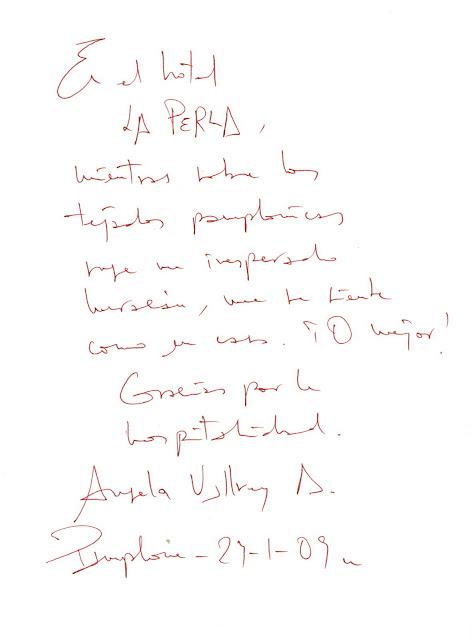 En el hotel
LA PERLA,
mientras sobre los
tejados pamplonicas
ruge un inesperado
huracán, una se siente
como en casa. ¡O mejor!
Gracias por la
hospitalidad.
Angela Vallvey A.
Pamplona - 29-1-09